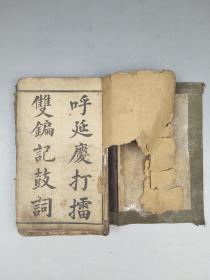 呼延慶打擂
雙鞭記鼓詞